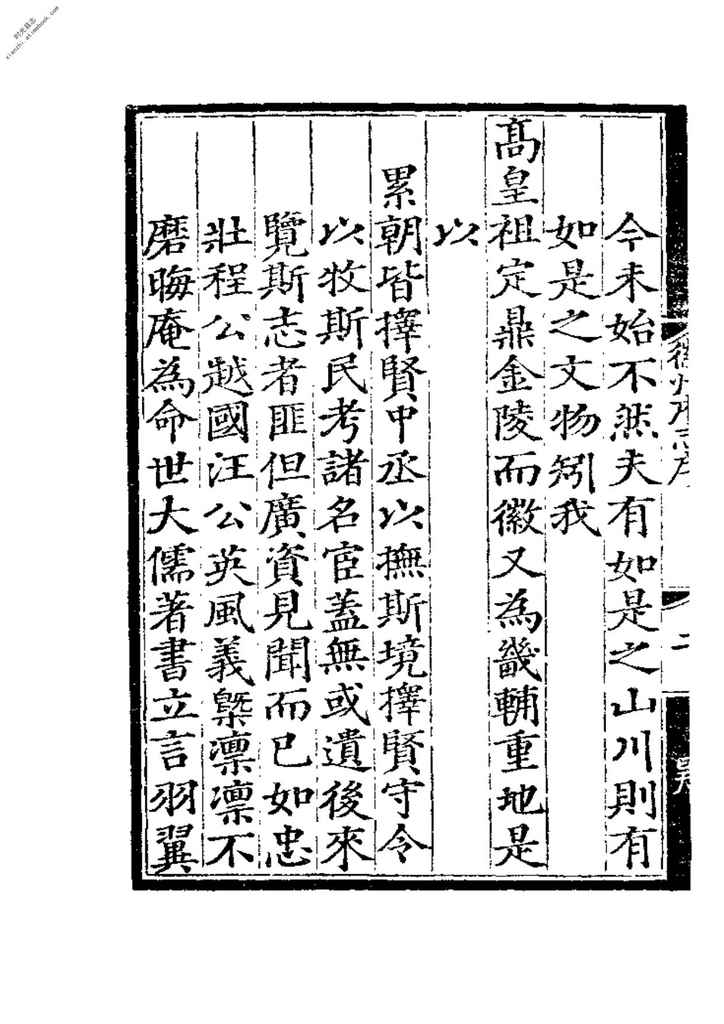 时光县志
xianzhi.atimebook.com
徽州府志序
二
今未始不然夫有如是之山川則有
如是之文物矧我
髙皇祖定鼎金陵而徽又為畿輔重地是
以
累朝皆擇賢中丞以撫斯境擇賢守令
以牧斯民考諸名宦蓋無或遺後來
覽斯志者匪但廣資見聞而已如忠
壯程公越國汪公英風義槩凛凛不
磨晦庵為命世大儒著書立言羽翼